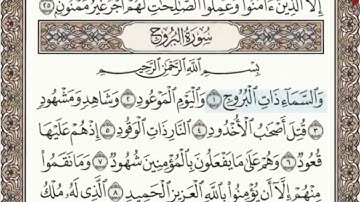 إِلَّا الَّذِينَ آمَنُوا وَعَمِلُوا الصَّالِحَاتِ لَهُمْ أَجْرٌ غَيْرُ مَمْنُونٍ ٢٥
سُورَةُ الْبُرُوجِ
بِسْمِ اللَّهِ الرَّحْمَٰنِ الرَّحِيمِ
وَالسَّمَاءِ ذَاتِ الْبُرُوجِ ١ وَالْيَوْمِ الْمَوْعُودِ ٢ وَشَاهِدٍ وَمَشْهُودٍ
٣ قُتِلَ أَصْحَابُ الْأُخْدُودِ ٤ النَّارِ ذَاتِ الْوَقُودِ ٥ إِذْ هُمْ عَلَيْهَا
قُعُودٌ ٦ وَهُمْ عَلَىٰ مَا يَفْعَلُونَ بِالْمُؤْمِنِينَ شُهُودٌ ٧ وَمَا نَقَمُوا
مِنْهُمْ إِلَّا أَنْ يُؤْمِنُوا بِاللَّهِ الْعَزِيزِ الْحَمِيدِ ٨ الَّذِي لَهُ مُلْكُ